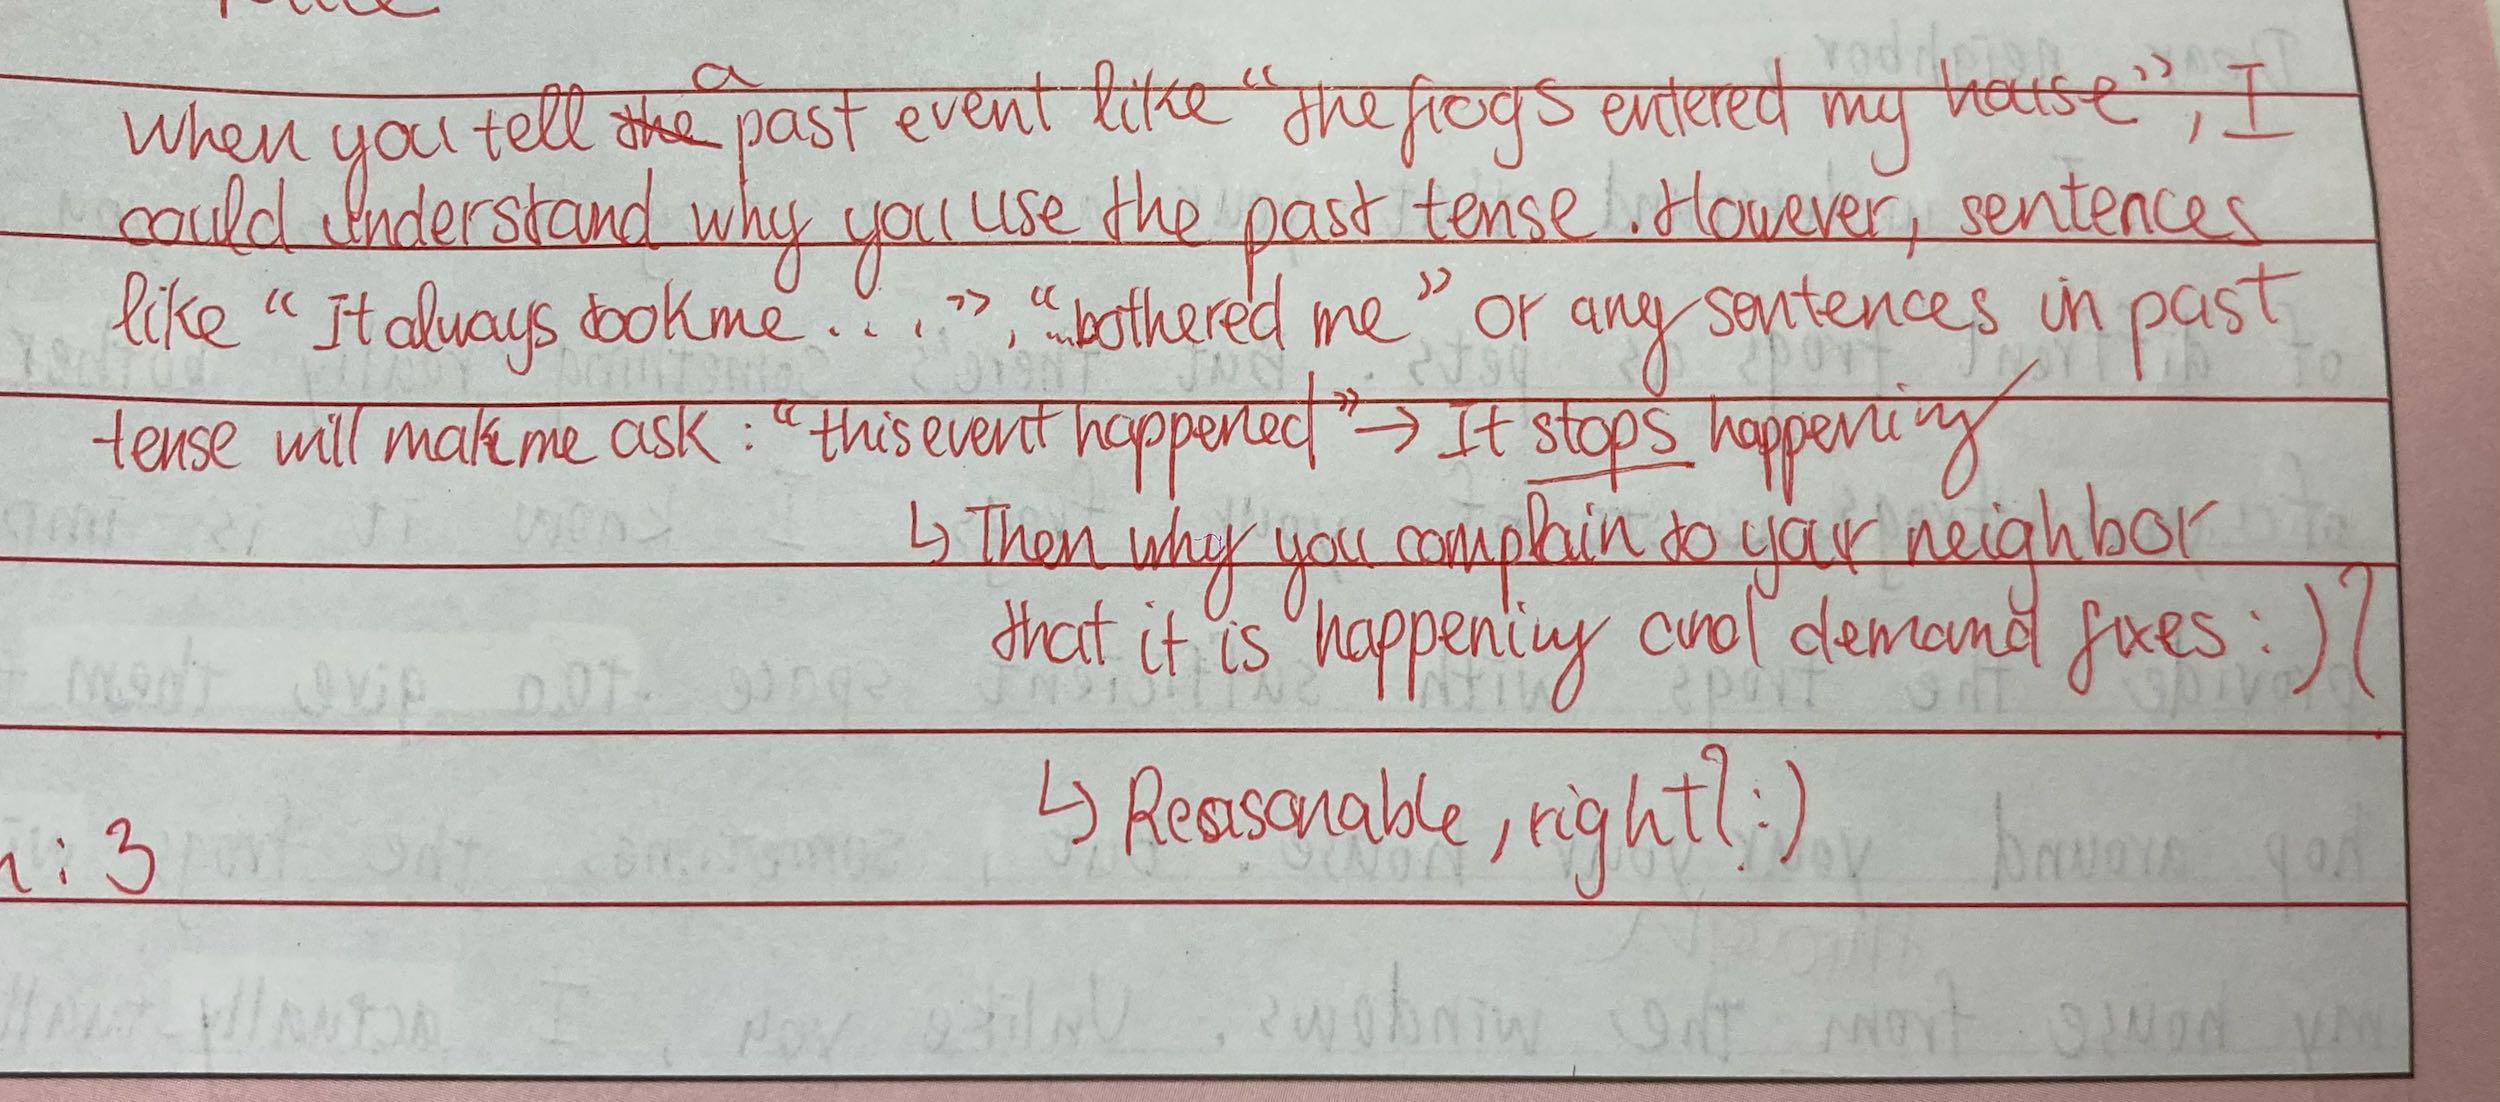 When you tell a past event like "the frogs entered my house", I
could understand why you use the past tense. However, sentences
like "It always took me....", "...bothered me" or any sentences in past
tense will make me ask: "this event happened" → It stops happening
↳ Then why you complain to your neighbor
that it is happening and demand fixes :)?
↳ Reasonable, right? :)
: 3